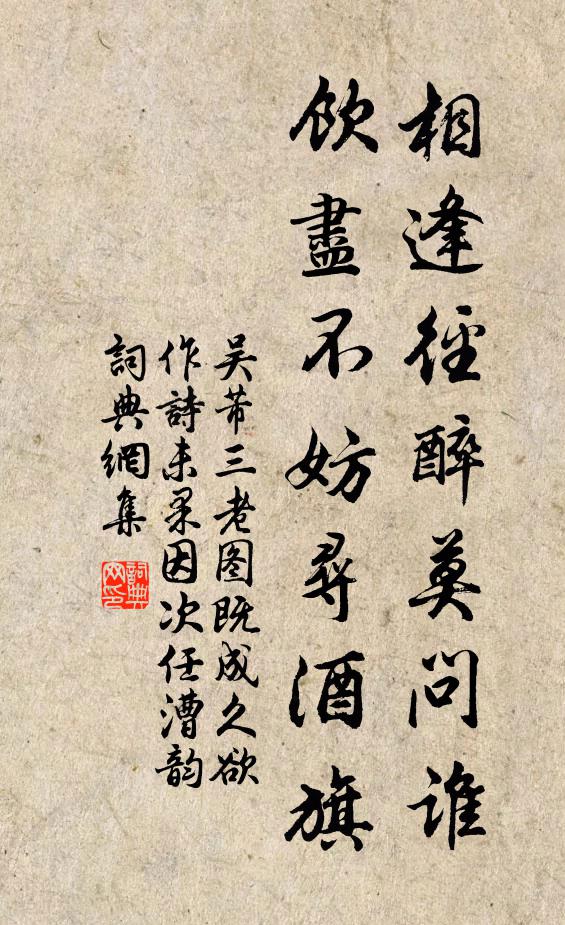 相逢徑醉莫問誰
飲盡不妨尋酒旗
吴芾三老图既成久欲
作詩未果因次任漕韵
詞典網集
詞典
网印